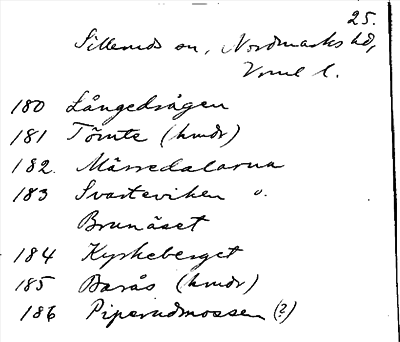 25.
Sillerud sn, Nordmarks hd,
Vrml l.
180 Långedvågen
181 Tömte (hmdr)
182. Märredalarna
183 Svarteviken o.
Brunåset
184 Kyrkeberget
185 Barås (hmdr)
186 Piperudmossen (?)